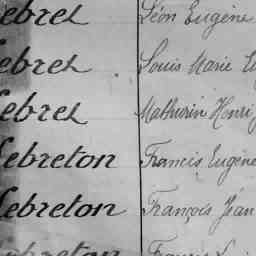 ebrel Léon Eugène
ebrel Louis Marie Eu
ebrel Mathurin Henri
Lebreton Francis Eugène
Lebreton François Jean
ebreton Francis